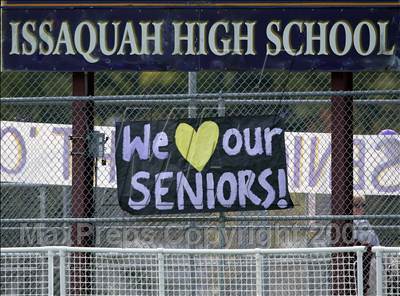 ISSAQUAH HIGH SCHOOL
We our
SENIORS!
MaxPreps Copyright